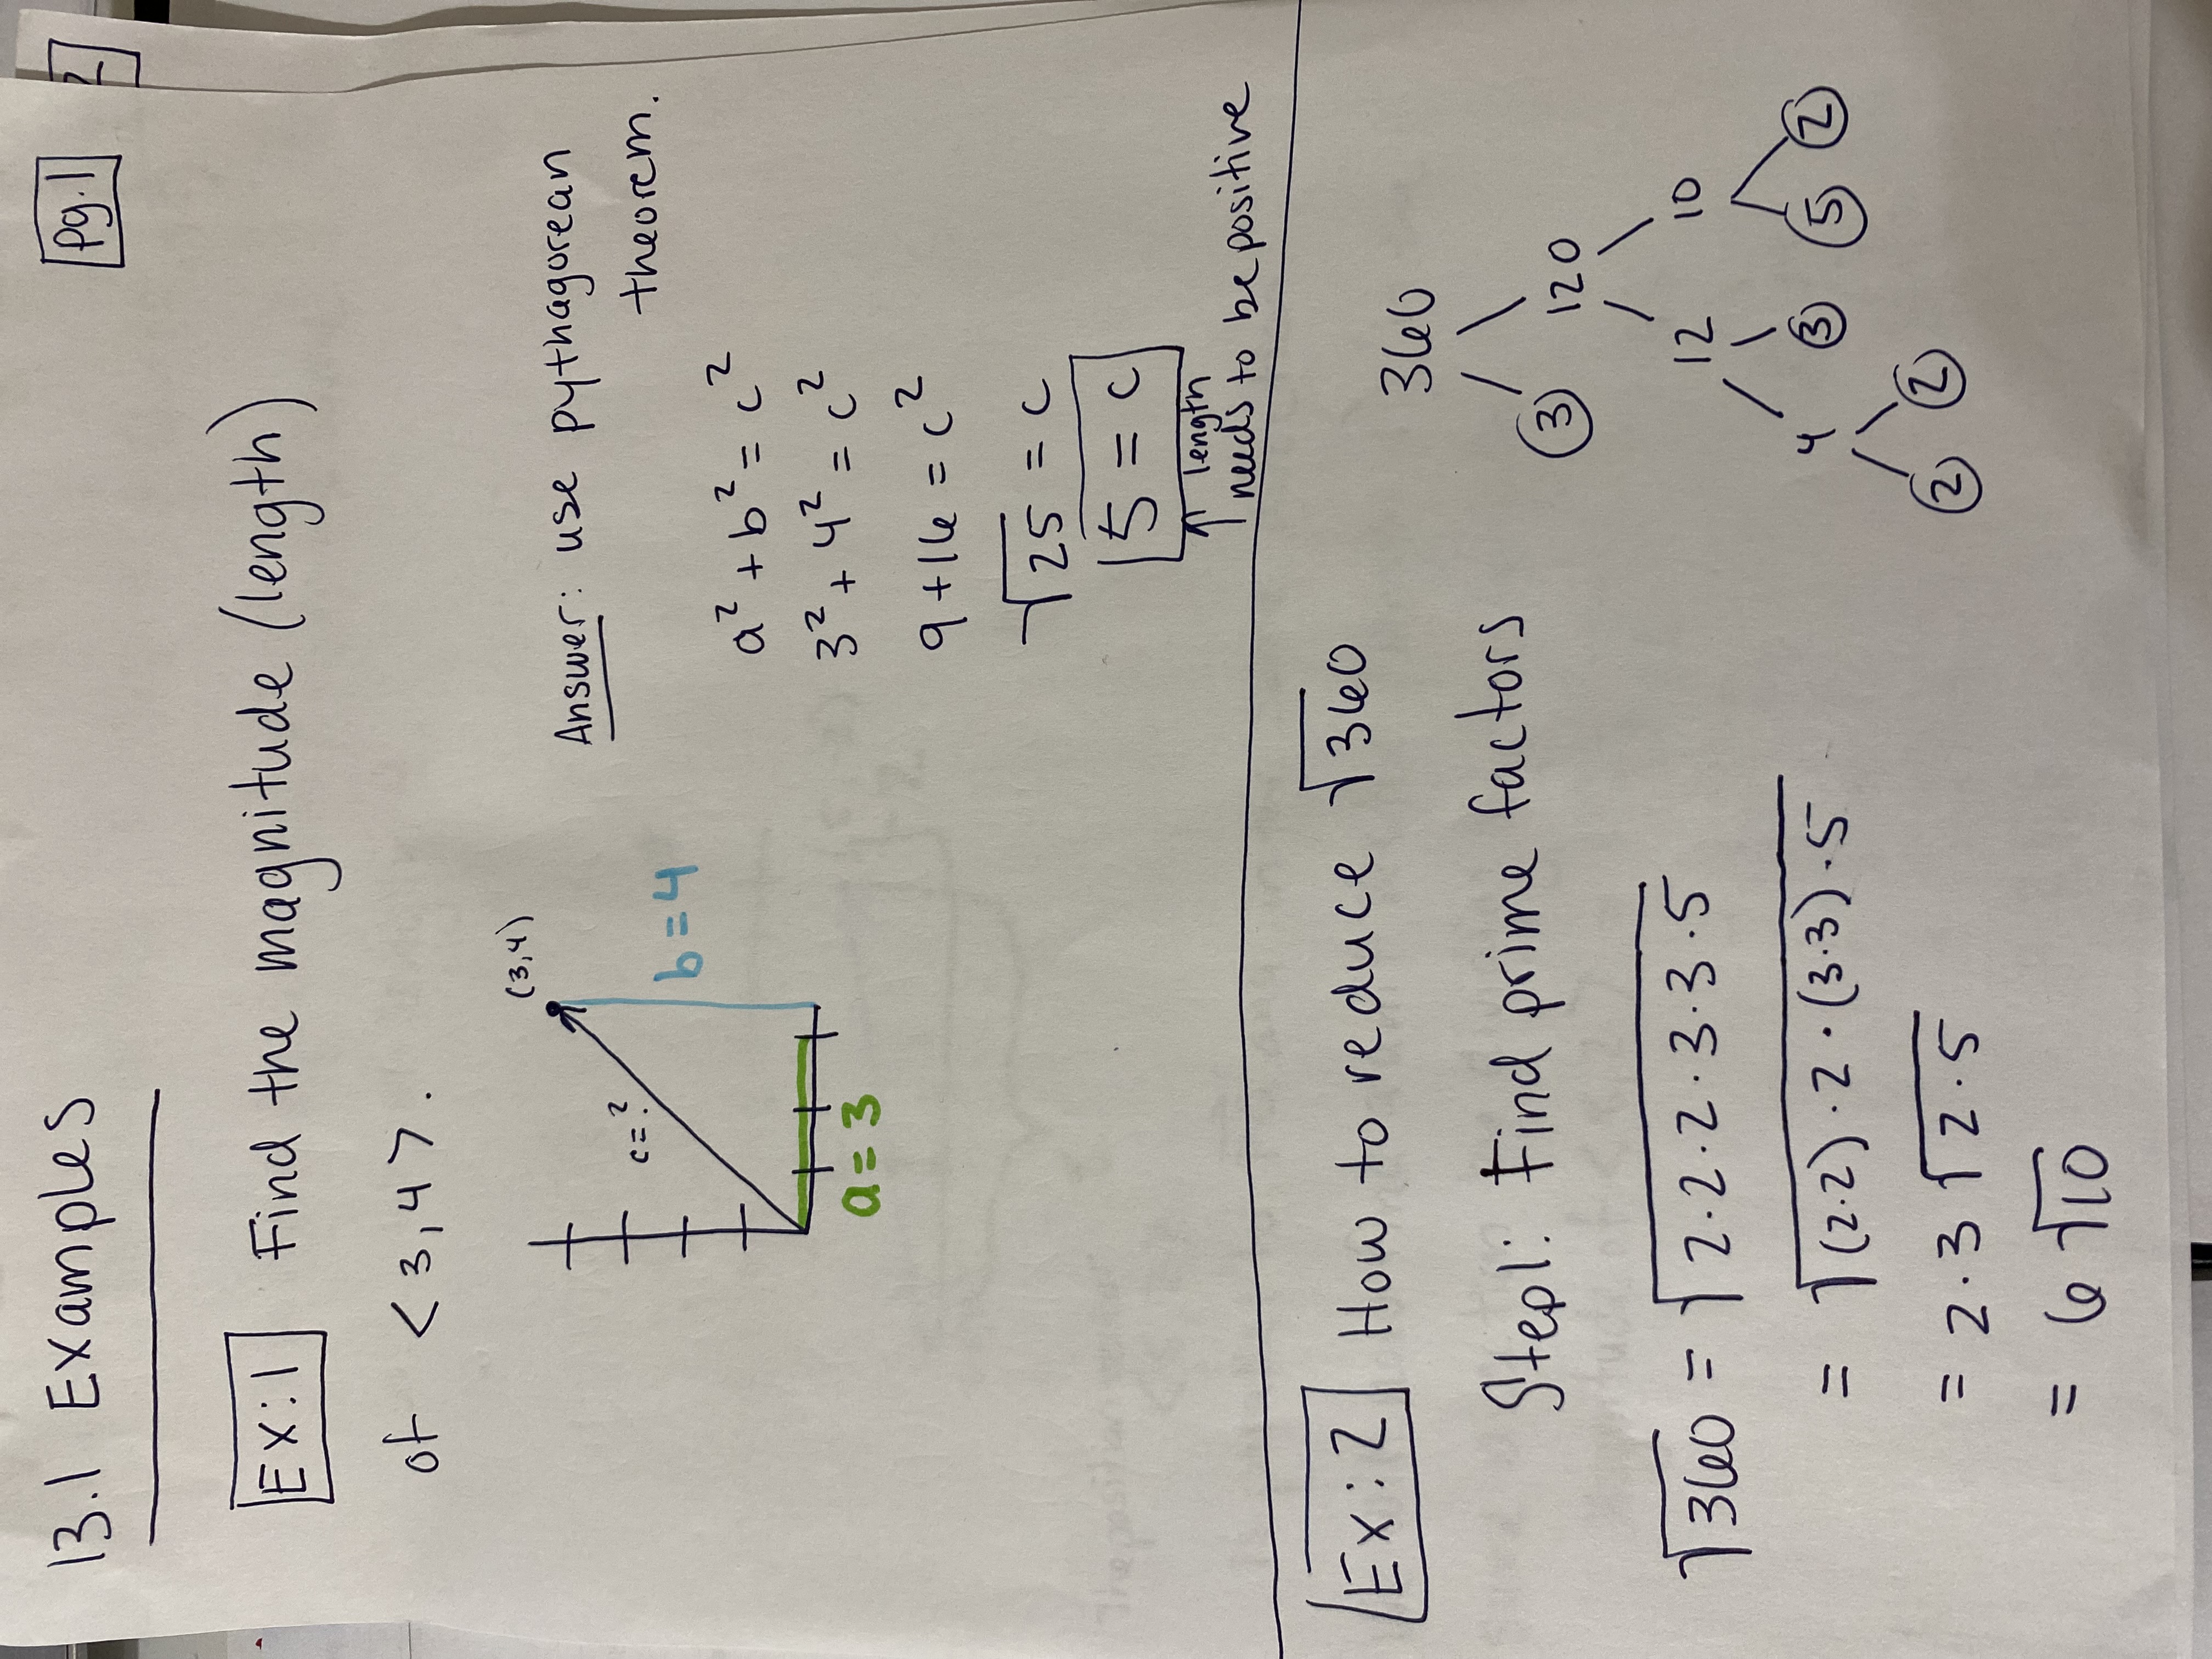 13.1 Examples
pg.1
2
Ex:1 Find the magnitude (length)
of <3,4>.
(3,4)
c=?
b=4
a=3
Answer: use pythagorean
theorem.
a² + b² = c²
3² + 4² = c²
9+16 = c²
√25 = c
5 = c
length
needs to be positive
Ex:2 How to reduce √360
Step1: Find prime factors
√360 = √2·2·2·3·3·5
= √(2·2)·2·(3·3)·5
= 2·3 √2·5
= 6 √10
360
3 120
12 10
4 3 5 2
2 2